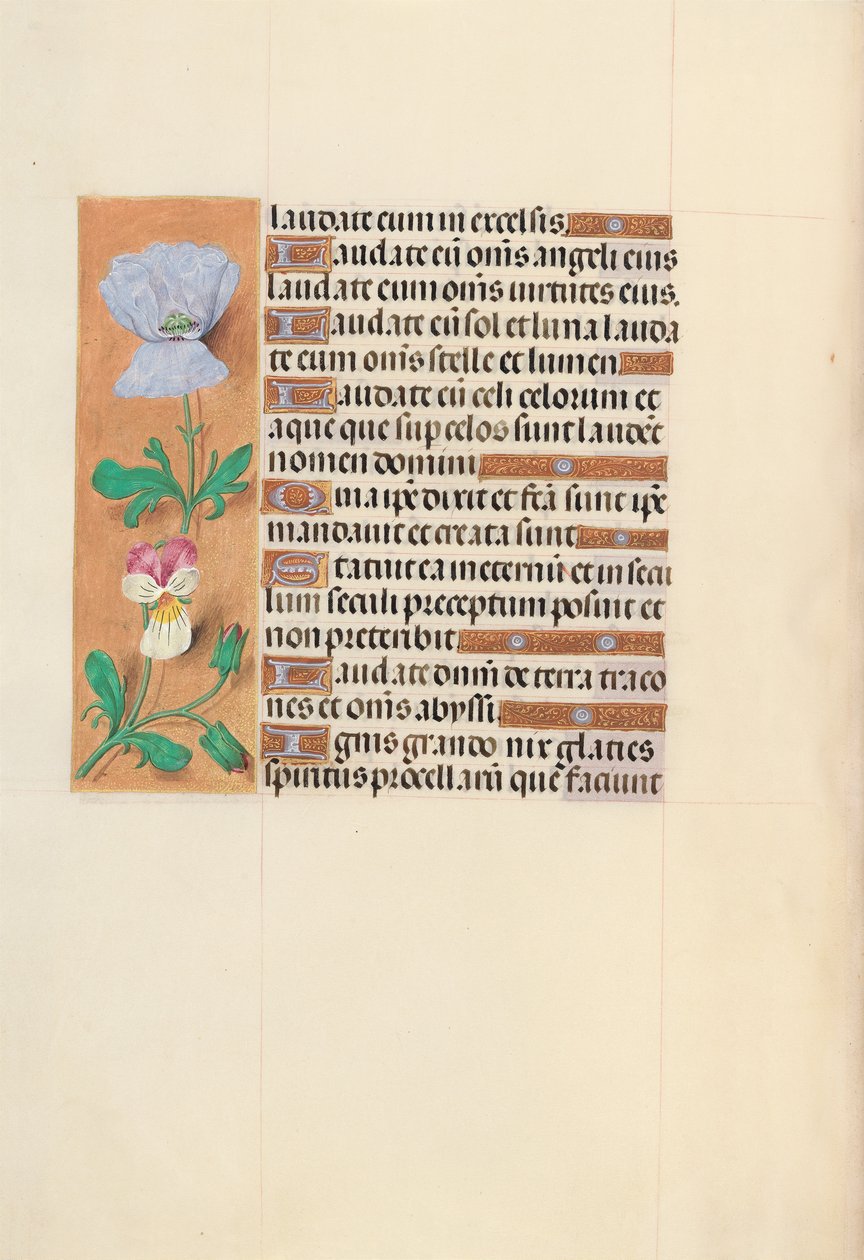 laudate eum in excelsis.
Laudate eū om̄s angeli eius
laudate eum om̄s uirtutes eius.
Laudate eū sol et luna lauda
te eum om̄s stelle et lumen
Laudate eū celi celorum et
aque que sup celos sunt laudēt
nomen domini
Quia ip̄e dixit et fc̄a sunt ip̄e
mandauit et creata sunt
Statuit ea in eternū et in secu
lum seculi preceptum posuit et
non preteribit.
Laudate dn̄m de terra draco
nes et om̄s abyssi.
Ignis grando nix glacies
spiritus procellarū que faciunt